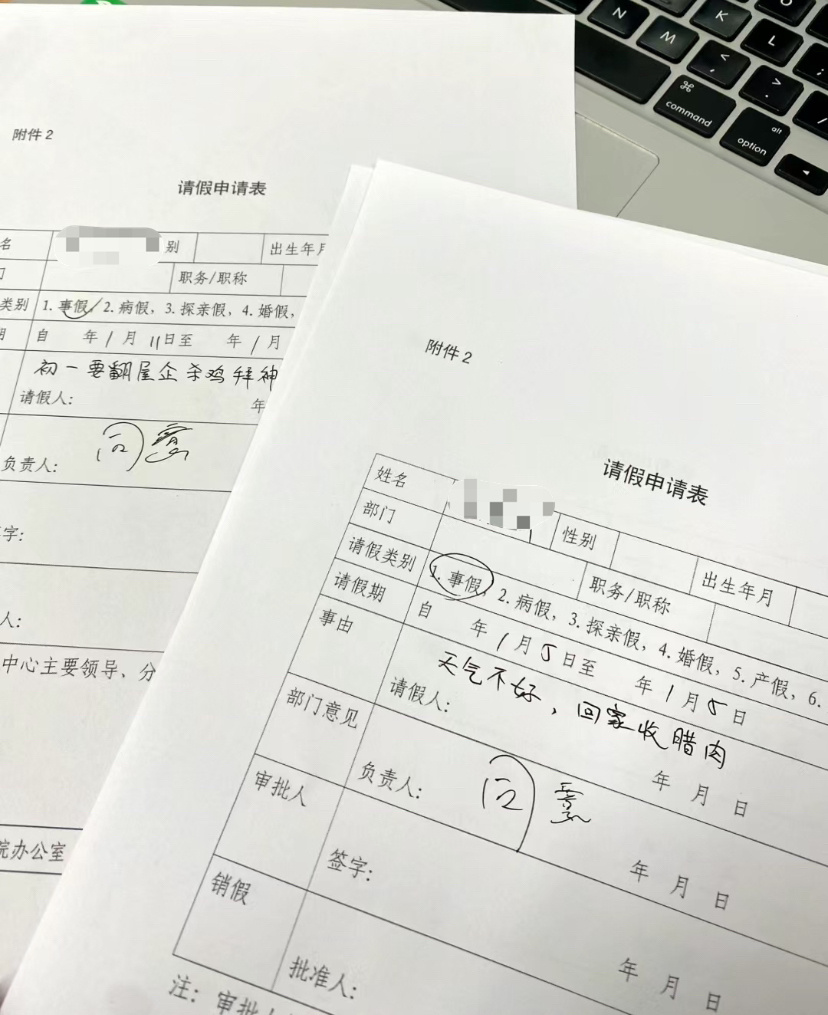 N
K
M
L
<
,
>
.
:
;
⌘
command
alt
option
附件2
请假申请表
名
别
出生年月
门
职务/职称
类别 1. 事假, 2. 病假, 3. 探亲假, 4. 婚假,
期 自 年 1 月 11 日至 年 1 月
初一要翻屋企杀鸡拜神
请假人: 年
负责人: 同意
字:
人:
中心主要领导、分
院办公室
附件2
请假申请表
姓名
性别
出生年月
部门
职务/职称
请假类别 1. 事假, 2. 病假, 3. 探亲假, 4. 婚假, 5. 产假, 6.
请假期 自 年 1 月 5 日至 年 1 月 5 日
事由 天气不好，回家收腊肉
请假人: 年 月 日
部门意见
负责人: 同意 年 月 日
审批人
签字: 年 月 日
销假
批准人: 年 月 日
注: 审批